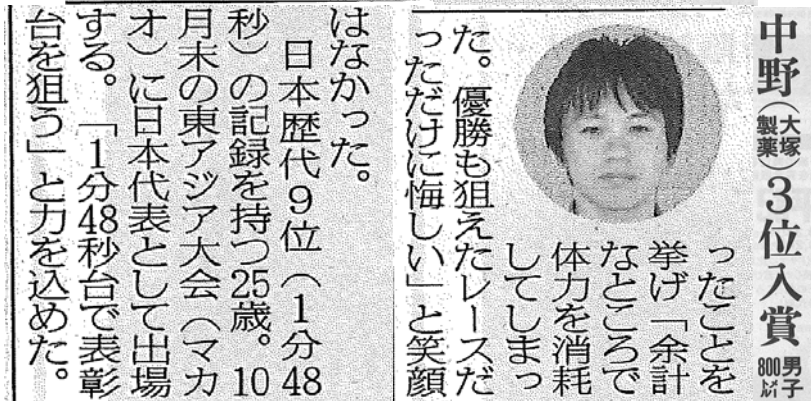 中野(大塚製薬)3位入賞 男子800㍍
ったことを
挙げ「余計
なところで
体力を消耗
してしまっ
た。優勝も狙えたレースだ
っただけに悔しい」と笑顔
はなかった。
日本歴代9位(1分48
秒)の記録を持つ25歳。10
月末の東アジア大会(マカ
オ)に日本代表として出場
する。「1分48秒台で表彰
台を狙う」と力を込めた。